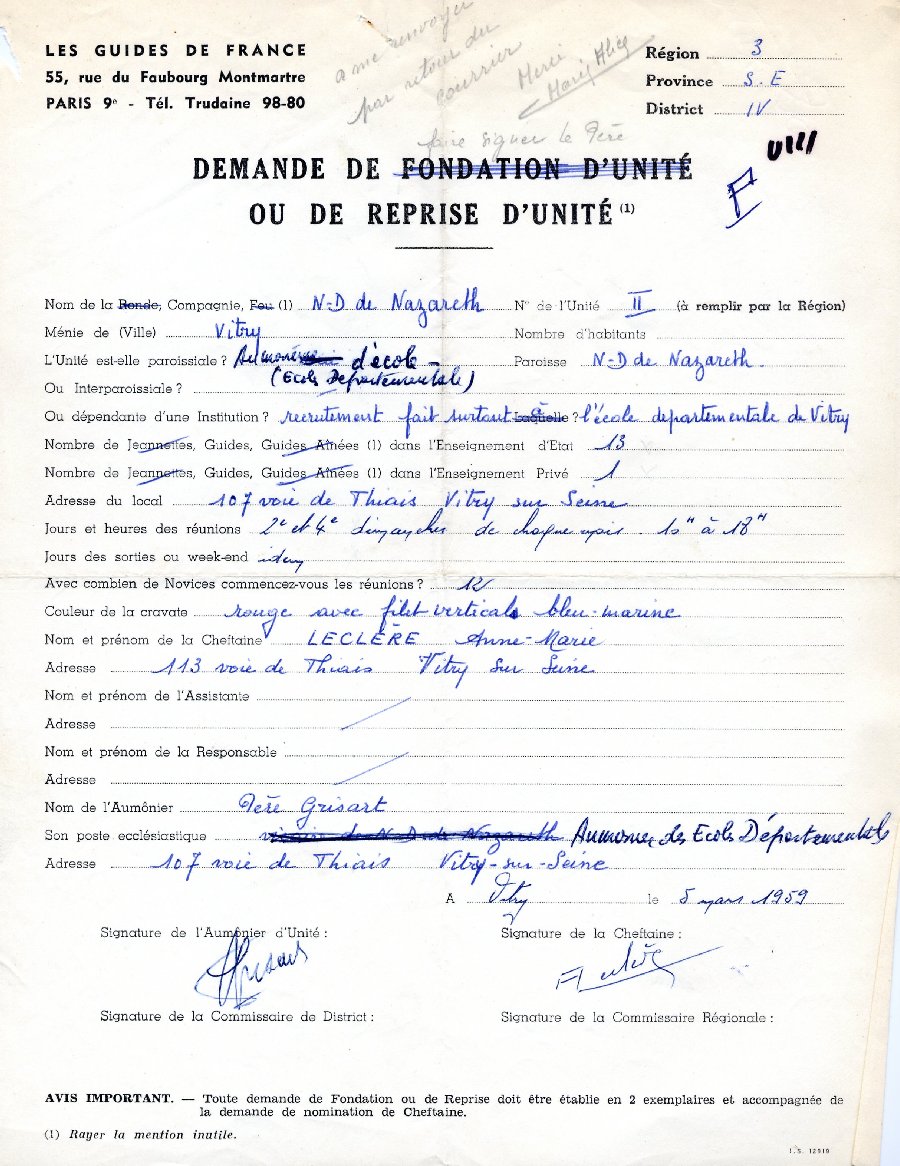 a me renvoyer
par retour du
courrier
Merci
Marie Alice
LES GUIDES DE FRANCE
55, rue du Faubourg Montmartre
PARIS 9e - Tél. Trudaine 98-80
Région 3
Province S.E
District IV
faire signer le Père
VIII
DEMANDE DE FONDATION D'UNITÉ
OU DE REPRISE D'UNITÉ (1)
F
Nom de la Ronde, Compagnie, Feu (1) N-D de Nazareth N° de l'Unité II (à remplir par la Région)
Ménie de (Ville) Vitry Nombre d'habitants
L'Unité est-elle paroissiale ? Aumonerie d'école - Paroisse N-D de Nazareth.
(Ecole Départementale)
Ou Interparoissiale ?
Ou dépendante d'une Institution ? recrutement fait surtout à Laquelle ? l'école departementale de Vitry
Nombre de Jeannettes, Guides, Guides Aînées (1) dans l'Enseignement d'Etat 13
Nombre de Jeannettes, Guides, Guides Aînées (1) dans l'Enseignement Privé 1
Adresse du local 107 voie de Thiais Vitry sur Seine
Jours et heures des réunions 2e et 4e dimanches de chaque mois 10h à 18h
Jours des sorties ou week-end idem
Avec combien de Novices commencez-vous les réunions ? 12
Couleur de la cravate rouge avec filet vertical bleu-marine
Nom et prénom de la Cheftaine LECLÈRE Anne-Marie
Adresse 113 voie de Thiais Vitry sur Seine
Nom et prénom de l'Assistante
Adresse
Nom et prénom de la Responsable
Adresse
Nom de l'Aumônier Père Grisart
Son poste ecclésiastique vicaire de N D de Nazareth Aumonier des Ecoles Départementales
Adresse 107 voie de Thiais Vitry-sur-Seine
A Vitry le 5 mars 1959
Signature de l'Aumônier d'Unité :
Signature de la Cheftaine :
Signature de la Commissaire de District :
Signature de la Commissaire Régionale :
AVIS IMPORTANT. — Toute demande de Fondation ou de Reprise doit être établie en 2 exemplaires et accompagnée de
la demande de nomination de Cheftaine.
(1) Rayer la mention inutile.
I.S. 12919